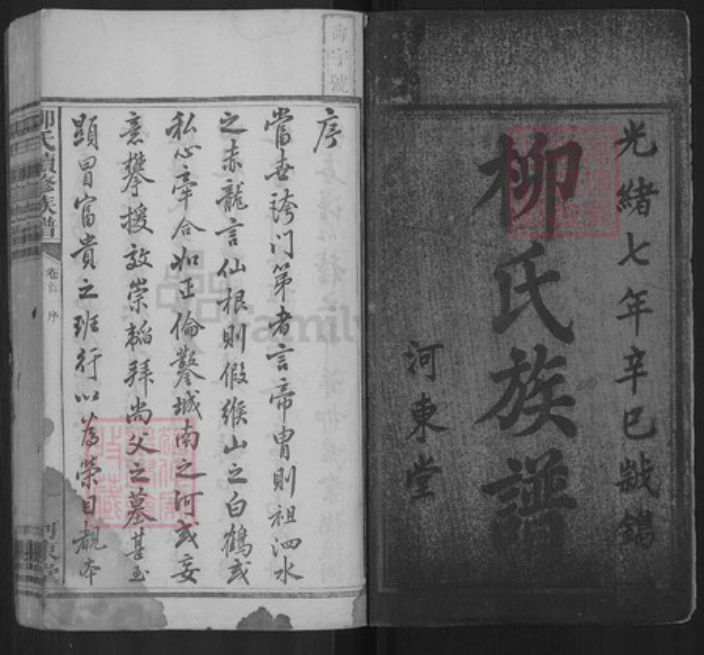 光緒七年辛巳敼鐫
柳氏族譜
河東堂
字號
序
嘗世誇門第者言帝胄則祖泗水
之赤龍言仙根則假緱山之白鶴或
私心牽合如正倫鑿城南之河或妄
意攀援效崇韜拜尚父之墓甚至
顯冒富貴之班行以為榮目覩本
柳氏續修族譜
卷首 序
河東堂
Family